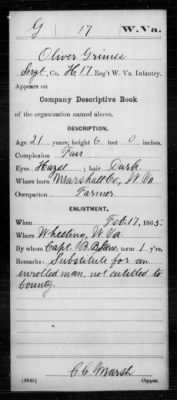 G 17 W. Va.
Oliver Grimes
Sergt, Co. H, 17 Reg't W. Va. Infantry.
Appears on
Company Descriptive Book
of the organization named above.
DESCRIPTION.
Age 21 years; height 6 feet 0 inches.
Complexion Fair
Eyes Hazel ; hair Dark
Where born Marshall Co, W. Va
Occupation Farmer
ENLISTMENT.
When Feb. 17, 1865.
Where Wheeling, W. Va
By whom Capt. ; term 1 y'rs.
Remarks: Substitute for an
enrolled man, not entitled to
bounty.
C. C. Marsh
Copyist.